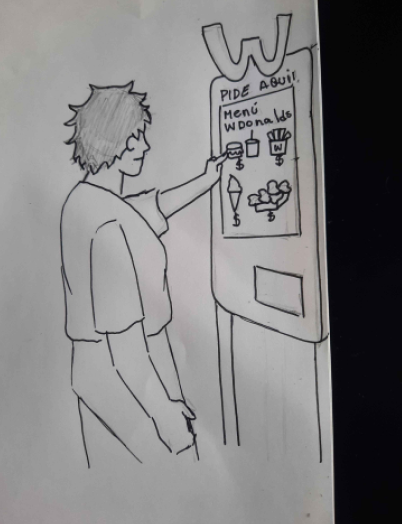 W
PIDE AQUÍ!
Menú
WDonalds
W
$ $
$ $